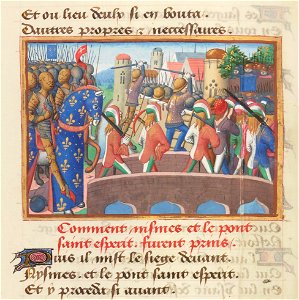 Et ou lieu deulx si en bouta
Dautres propres et necessaires.
Comment nismes et le pont
saint esperit furent prins.
Puis il mist le siege devant
Nysmes et le pont saint esperit
Et y proceda si avant.